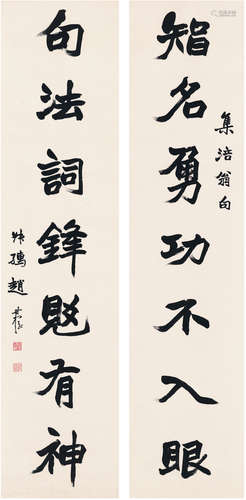 智名勇功不入眼
集涪翁句
句法詞鋒有神
叔孺趙